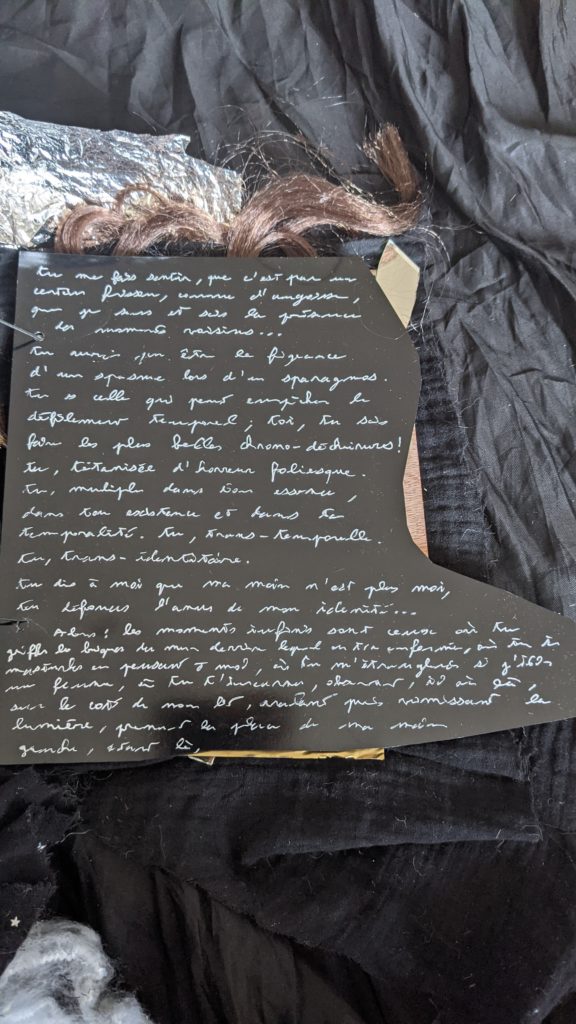 tu me fais sentir, que c'est par un
certain frisson, comme d'angoisse,
que je suis et sois la présence
des moments voisins...
tu aurais pu être la figurance
d'un spasme lors d'un sparagmos.
tu es celle qui peut empêcher le
défilement temporel, toi, tu sais
faire les plus belles chrono-déchirures!
tu, tétanisée d'horreur foliesque.
tu, multiple dans ton essence,
dans ton existence et dans ta
temporalité. tu, trans-temporelle.
tu, trans-identitaire.
tu dis à moi que ma main n'est plus moi,
tu défonces l'anus de mon identité...
Alors : les moments infinis sont ceux où tu
gifles les lignes du mur derrière lequel on t'a enfermée, où tu te
masturbes en pensant à moi, où tu m'étrangles si j'
une femme, où tu t'incarnes, là,
sur le côté de mon lit, puis vomissant la
lumière, prenant la place de ma main
gauche, étant là,